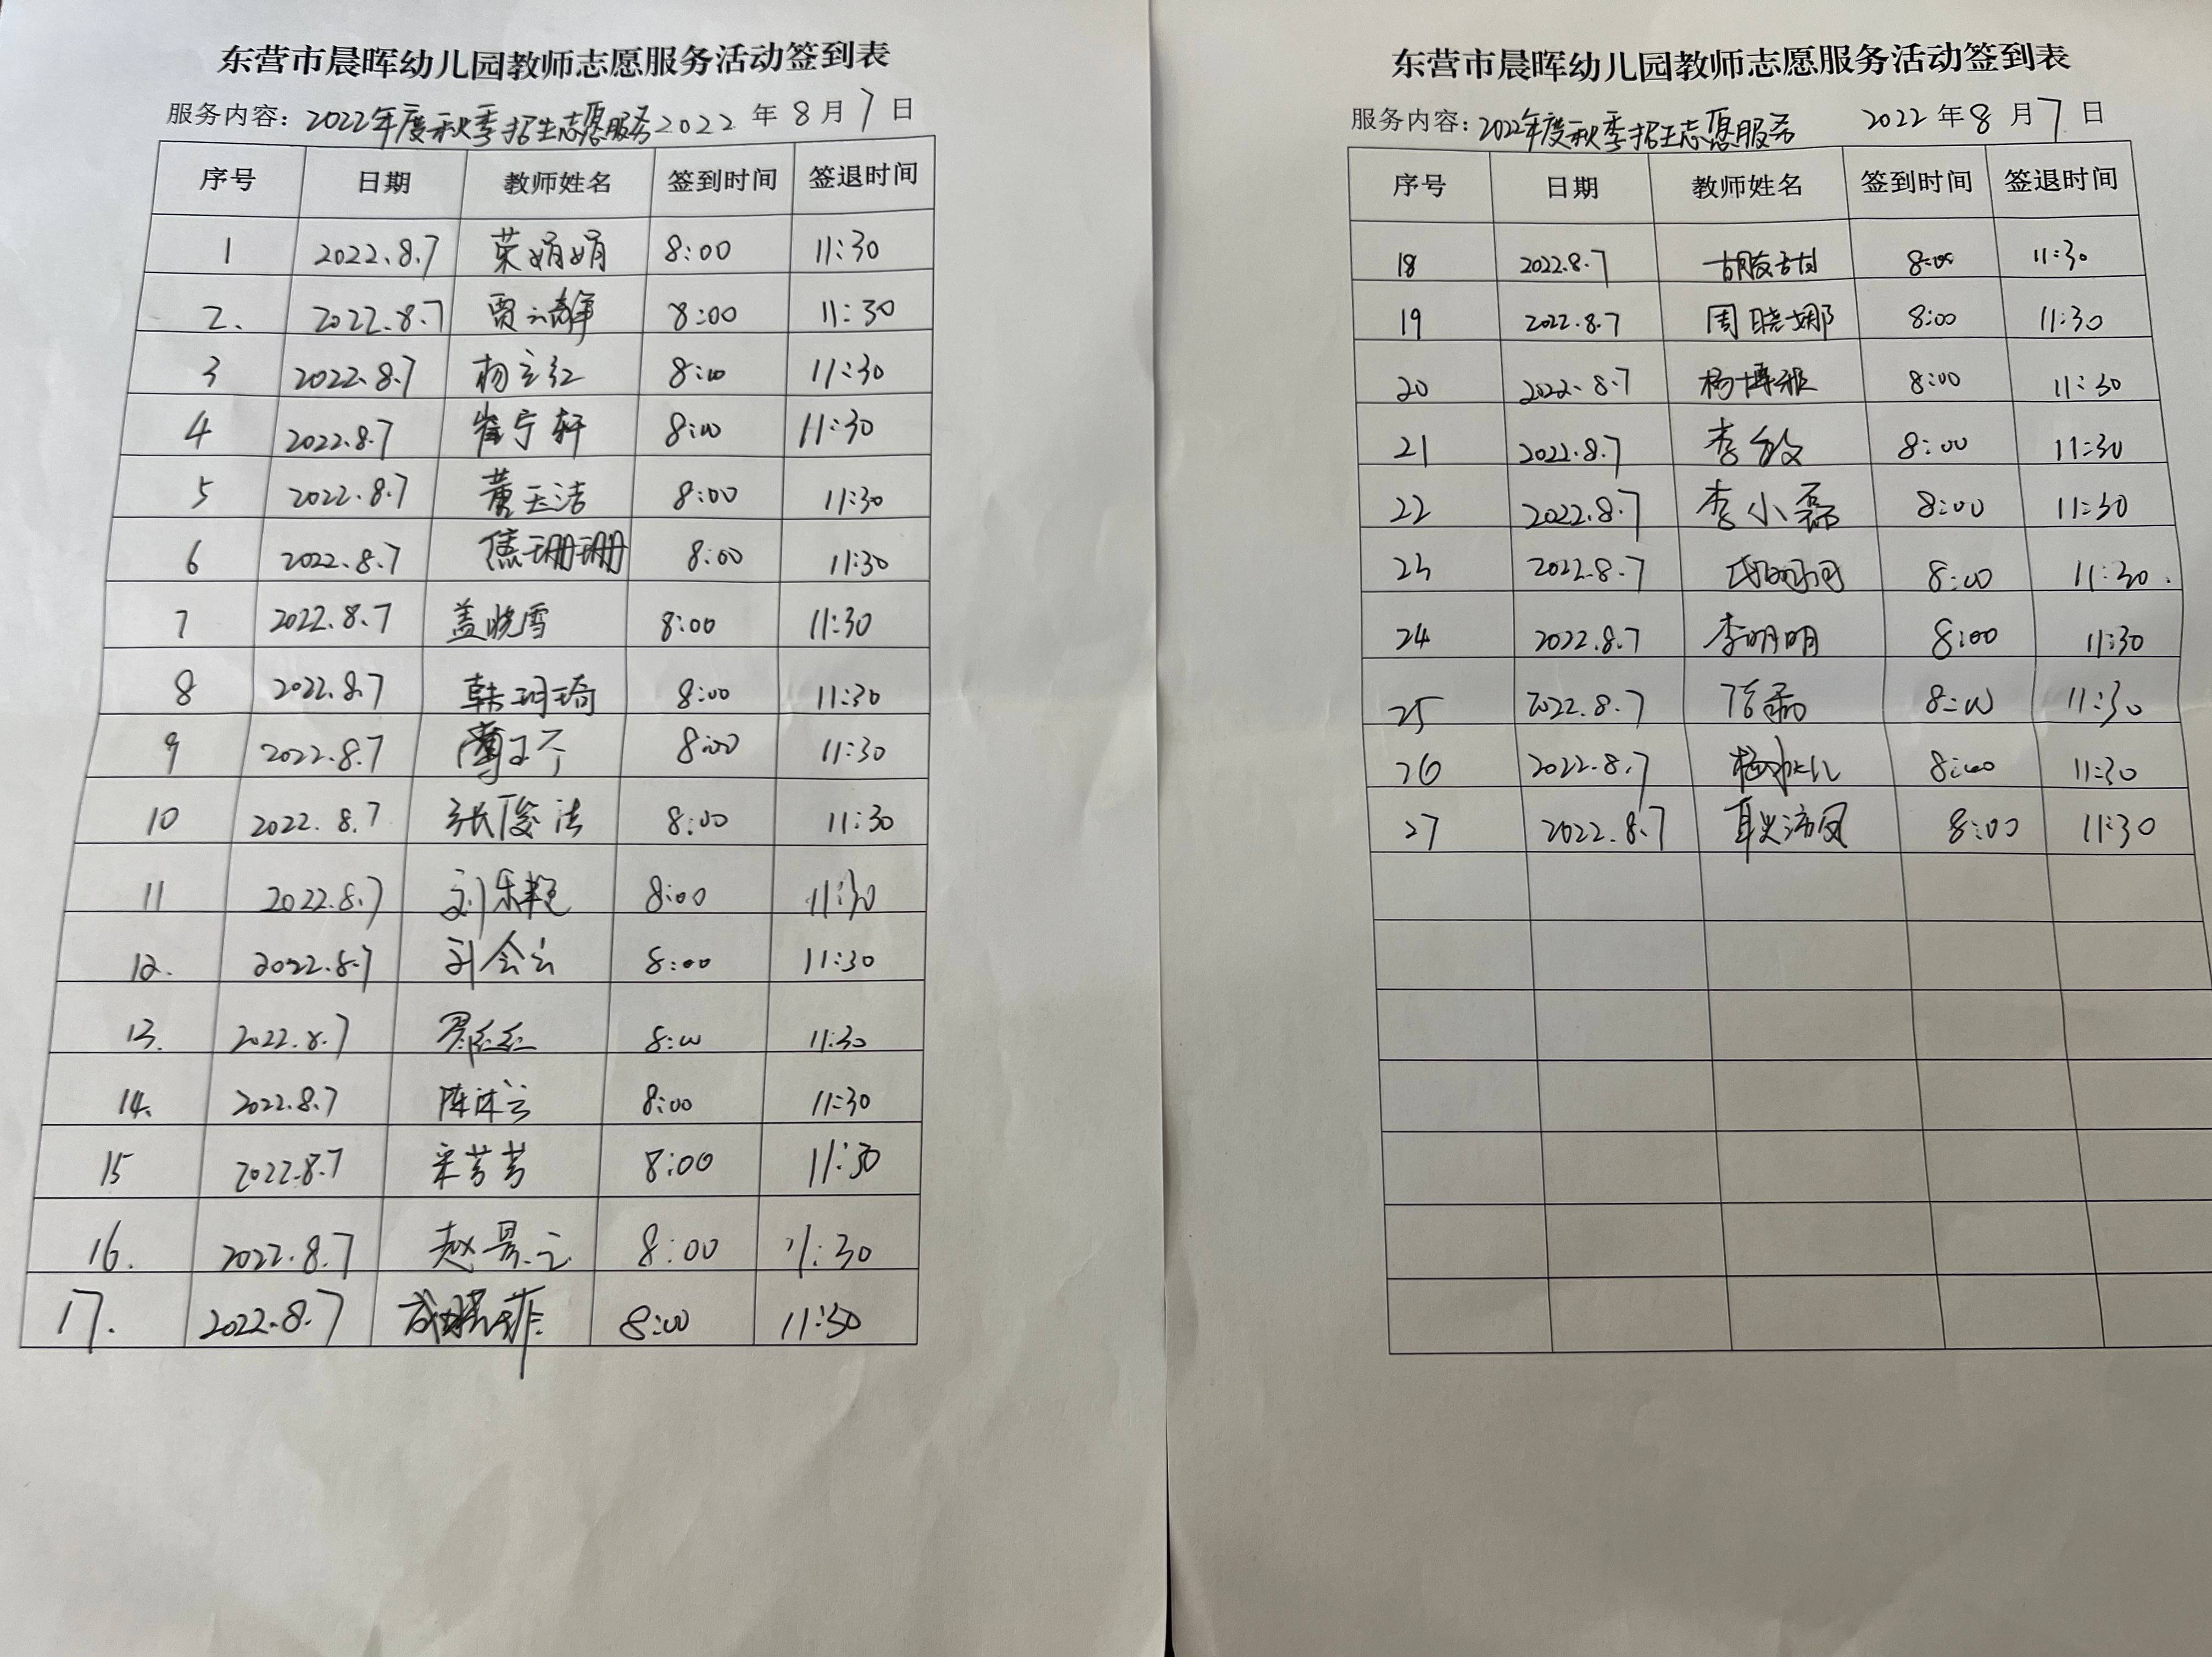 东营市晨晖幼儿园教师志愿服务活动签到表
服务内容：2022年度秋季招生志愿服务 2022 年 8 月 7 日
序号 日期 教师姓名 签到时间 签退时间
1 2022.8.7 荣娟娟 8:00 11:30
2. 2022.8.7 贾 8:00 11:30
3 2022.8.7 杨立红 8:00 11:30
4 2022.8.7 崔宁轩 8:00 11:30
5 2022.8.7 董玉洁 8:00 11:30
6 2022.8.7 焦珊珊 8:00 11:30
7 2022.8.7 盖晓雪 8:00 11:30
8 2022.8.7 韩玥琦 8:00 11:30
9 2022.8.7 8:00 11:30
10 2022.8.7 张俊洁 8:00 11:30
11 2022.8.7 刘乐艳 8:00 11:30
12. 2022.8.7 刘会云 8:00 11:30
13. 2022.8.7 8:00 11:30
14. 2022.8.7 陈沐云 8:00 11:30
15 2022.8.7 宋芳芳 8:00 11:30
16. 2022.8.7 赵景云 8:00 11:30
17. 2022.8.7 8:00 11:30
东营市晨晖幼儿园教师志愿服务活动签到表
服务内容：2022年度秋季招生志愿服务 2022 年 8 月 7 日
序号 日期 教师姓名 签到时间 签退时间
18 2022.8.7 8:00 11:30
19 2022.8.7 周晓娜 8:00 11:30
20 2022.8.7 杨博雅 8:00 11:30
21 2022.8.7 李敏 8:00 11:30
22 2022.8.7 李小磊 8:00 11:30
23 2022.8.7 8:00 11:30.
24 2022.8.7 李明明 8:00 11:30
25 2022.8.7 8:00 11:30
26 2022.8.7 8:00 11:30
27 2022.8.7 8:00 11:30